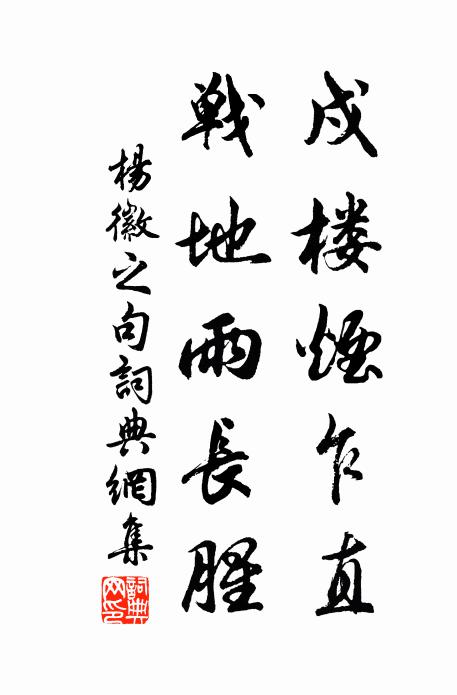 戍楼煙乍直
戦地雨長腥
楊徽之句詞典網集
詞典網印